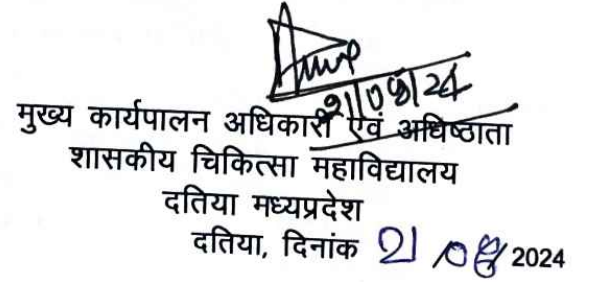 21/08/24
मुख्य कार्यपालन अधिकारी एवं अधिष्ठाता
शासकीय चिकित्सा महाविद्यालय
दतिया मध्यप्रदेश
दतिया, दिनांक 21/08/2024